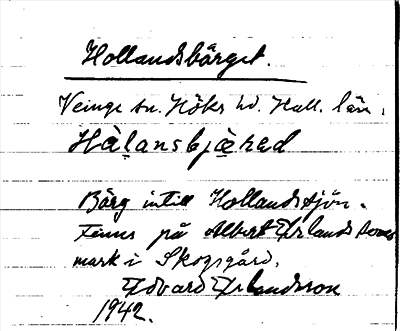 Hollandsbärget.
Veinge sn. Höks hd. Hall. län.
Hålansbjäred
Bärg intill Hollandssjön.
Finns på Albert Erlandssons
mark i Skogsgård.
Edvard Erlandsson
1942.